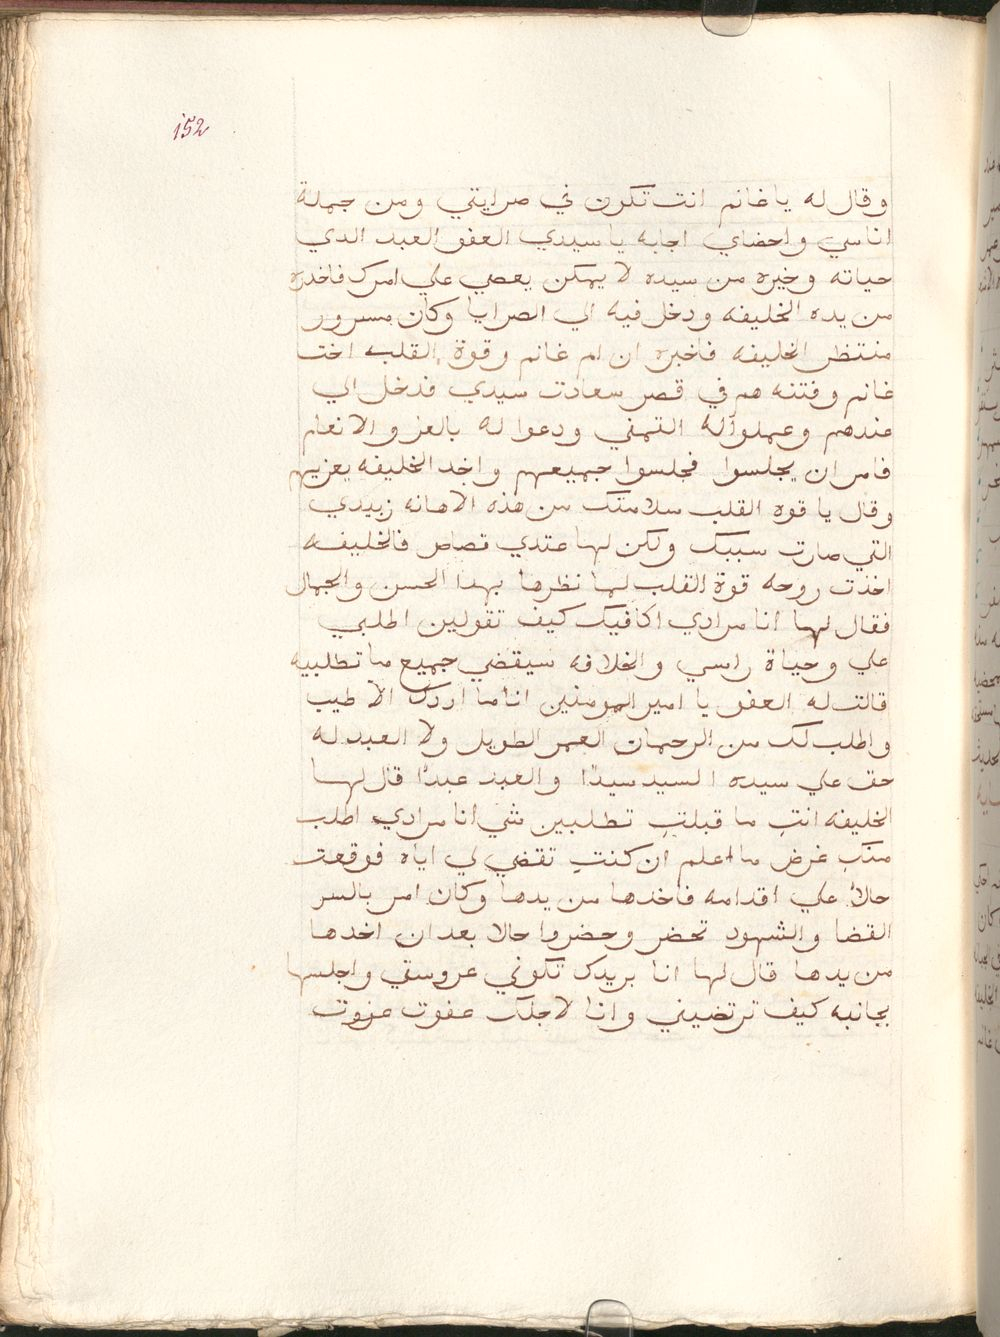 152
وقال له يا غانم انت تكون في صرايتي ومن جملة
اناسي واحضاي اجابه يا سيدي العفو العبد الدي
حياته وخيره من سيده لا يمكن يعصي علي امرك فاخده
من يده الخليفه ودخل فيه الي الصرايا وكان مسرور
منتظر الخليفه فاخبره ان ام غانم وقوة القلب اخت
غانم وفتنه هم في قصر سعادت سيدي فدخل الي
عندهم وعملوا له التمني ودعوا له بالعز والانعام
فامر ان يجلسوا فجلسوا جميعهم واخد الخليفه يعزيهم
وقال يا قوه القلب سلامتك من هذه الاهانه زبيدي
التي صارت سببك ولكن لها عندي قصاص فالخليفه
اخذت روحه قوة القلب لما نظرها بهدا الحسن والجمال
فقال لها انا مرادي اكافيك كيف تقولين اطلبي
علي وحياة راسي والخلافه سيقضي جميع ما تطلبيه
قالت له العفو يا امير المومنين انا ما اردك الا طيب
واطلب لك من الرحمان العمر الطويل ولا العبد له
حق علي سيده السيد سيدًا والعبد عبدًا قال لها
الخليفه انتِ ما قبلتِ تطلبين شي انا مرادي اطلب
منكِ غرض ما اعلم ان كنتِ تقضي لي اياه فوقعت
حالاً علي اقدامه فاخدها من يدها وكان امر بالسر
القضا والشهود تحضر وحضروا حالا بعد ان اخدها
من يدها قال لها انا بريدك تكوني عروستي واجلسها
بجانبه كيف ترتضيني وانا لاجلك عفوت